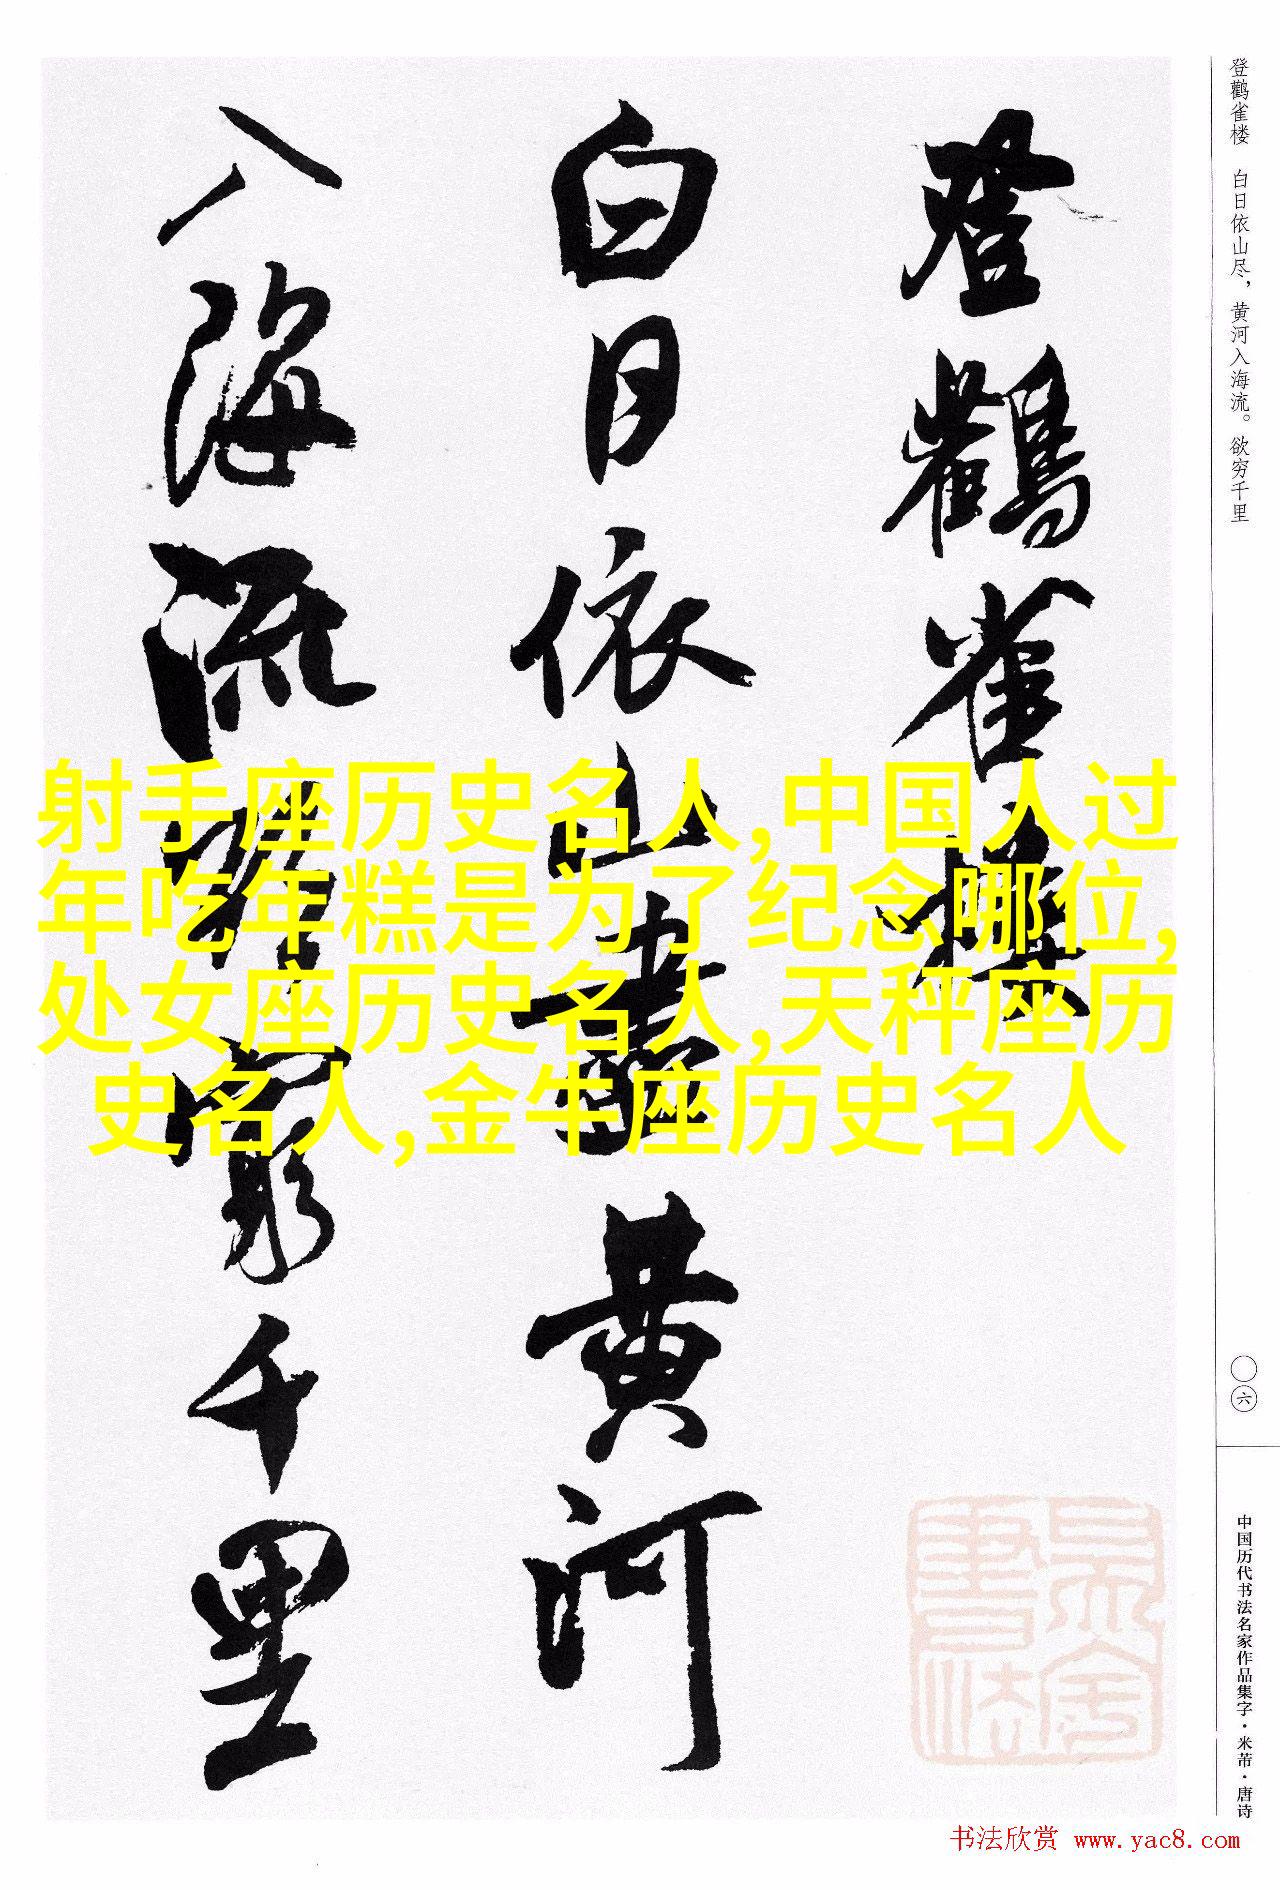 登鹳雀楼 白日依山尽，黄河入海流。欲穷千里
登鸛雀樓
白日依山盡黄河
入海流欲窮千里
射手座历史名人,中国人过
年吃年糕是为了纪念哪位,
处女座历史名人,天秤座历
史名人,金牛座历史名人
〇六
中国历代书法名家作品集字·米芾·唐诗
书法欣赏 www.yac8.com